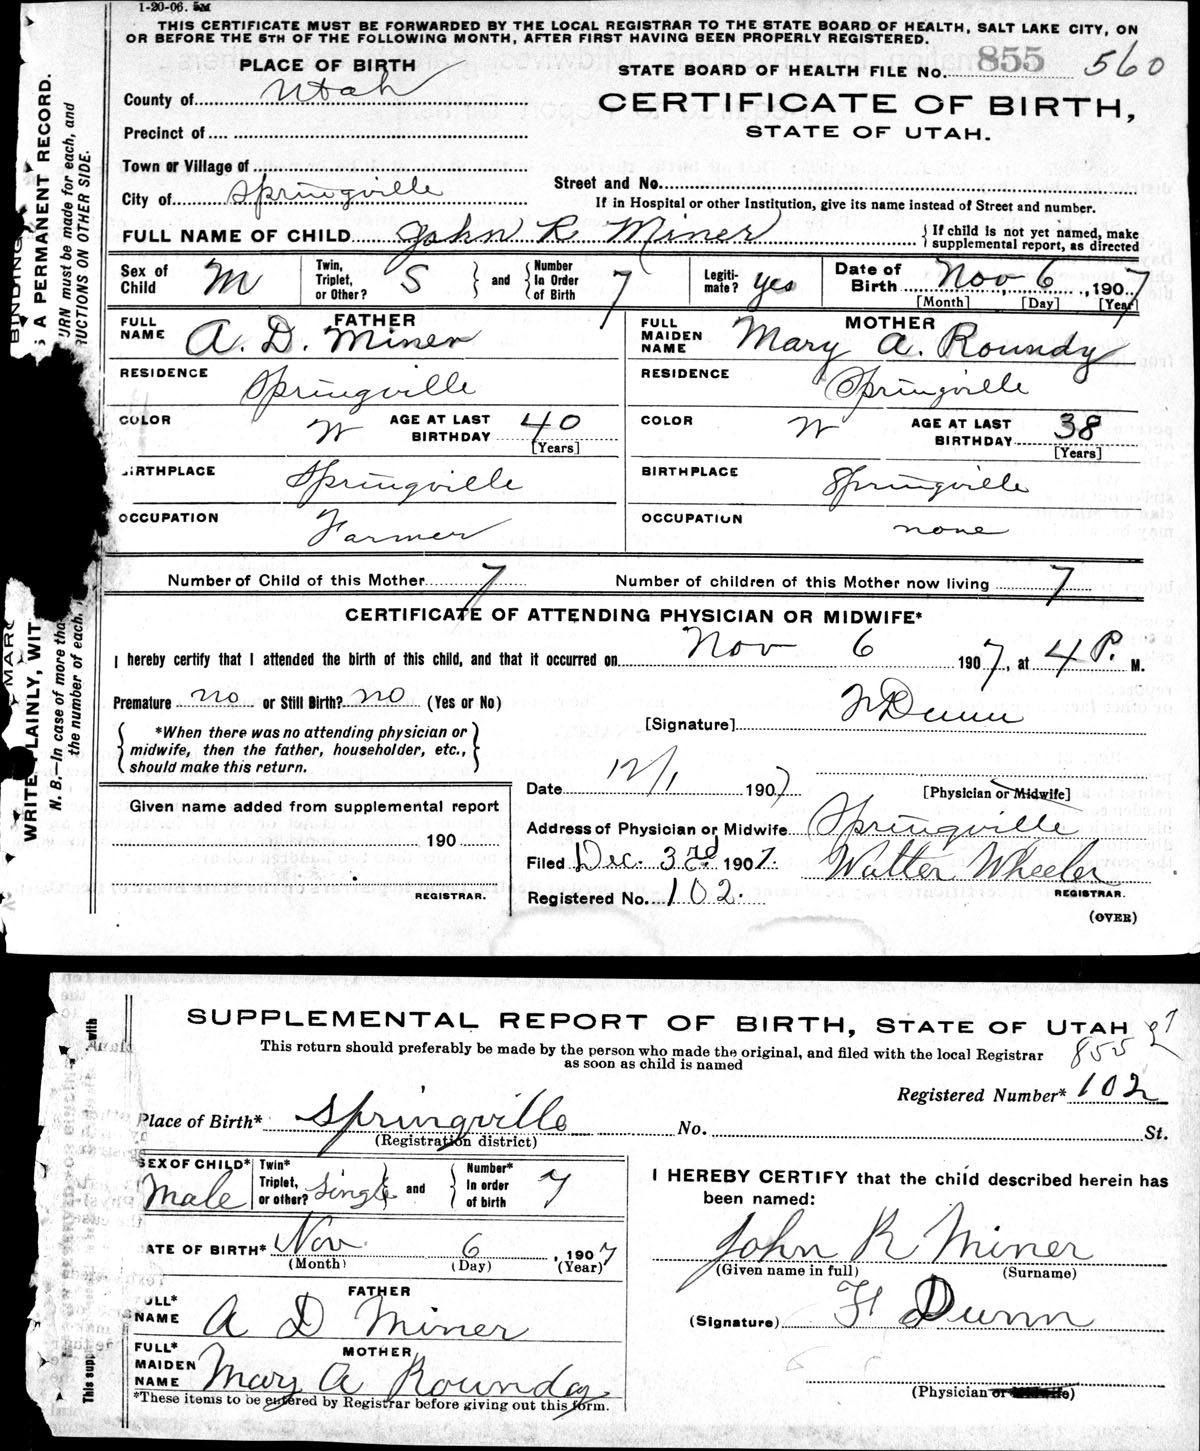 1-20-06. 5M
THIS CERTIFICATE MUST BE FORWARDED BY THE LOCAL REGISTRAR TO THE STATE BOARD OF HEALTH, SALT LAKE CITY, ON
OR BEFORE THE 5TH OF THE FOLLOWING MONTH, AFTER FIRST HAVING BEEN PROPERLY REGISTERED.
PLACE OF BIRTH
STATE BOARD OF HEALTH FILE No. 855 560
County of Utah
CERTIFICATE OF BIRTH,
STATE OF UTAH.
Precinct of
Town or Village of
City of Springville
Street and No.
If in Hospital or other Institution, give its name instead of Street and number.
FULL NAME OF CHILD John R Miner
{If child is not yet named, make
supplemental report, as directed
Sex of Child M
Twin, Triplet, or Other? S } and { Number In Order of Birth 7
Legiti-mate? yes
Date of Birth Nov 6, 1907
[Month] [Day] [Year]
FATHER
FULL NAME A. D. Miner
MOTHER
FULL MAIDEN NAME Mary A. Roundy
RESIDENCE Springville
RESIDENCE Springville
COLOR W AGE AT LAST BIRTHDAY 40 [Years]
COLOR W AGE AT LAST BIRTHDAY 38 [Years]
BIRTHPLACE Springville
BIRTHPLACE Springville
OCCUPATION Farmer
OCCUPATION none
Number of Child of this Mother 7 Number of children of this Mother now living 7
CERTIFICATE OF ATTENDING PHYSICIAN OR MIDWIFE*
I hereby certify that I attended the birth of this child, and that it occurred on Nov 6 1907, at 4 P. M.
Premature no or Still Birth? no (Yes or No)
[Signature] F Dunn
{ *When there was no attending physician or
midwife, then the father, householder, etc.,
should make this return. }
Date 12/1 1907
[Physician or Midwife]
Given name added from supplemental report
190
REGISTRAR.
Address of Physician or Midwife Springville
Filed Dec. 3rd 1907. Walter Wheeler
REGISTRAR.
Registered No. 102.
(OVER)
BINDING
S A PERMANENT RECORD.
URN must be made for each, and
RUCTIONS ON OTHER SIDE.
MARG
WRITE PLAINLY, WIT
N. B.—In case of more tha
the number of each,
SUPPLEMENTAL REPORT OF BIRTH, STATE OF UTAH
This return should preferably be made by the person who made the original, and filed with the local Registrar
as soon as child is named
855
Registered Number* 102
Place of Birth* Springville No. St.
(Registration district)
SEX OF CHILD* Male
Twin* Triplet, or other? Single } and { Number* In order of birth 7
DATE OF BIRTH* Nov 6, 1907
(Month) (Day) (Year)
FATHER
ULL* NAME A D Miner
MOTHER
FULL* MAIDEN NAME Mary A Roundy
*These items to be entered by Registrar before giving out this form.
I HEREBY CERTIFY that the child described herein has
been named:
John R Miner
(Given name in full) (Surname)
(Signature) F Dunn
(Physician or Midwife)
with
This supp